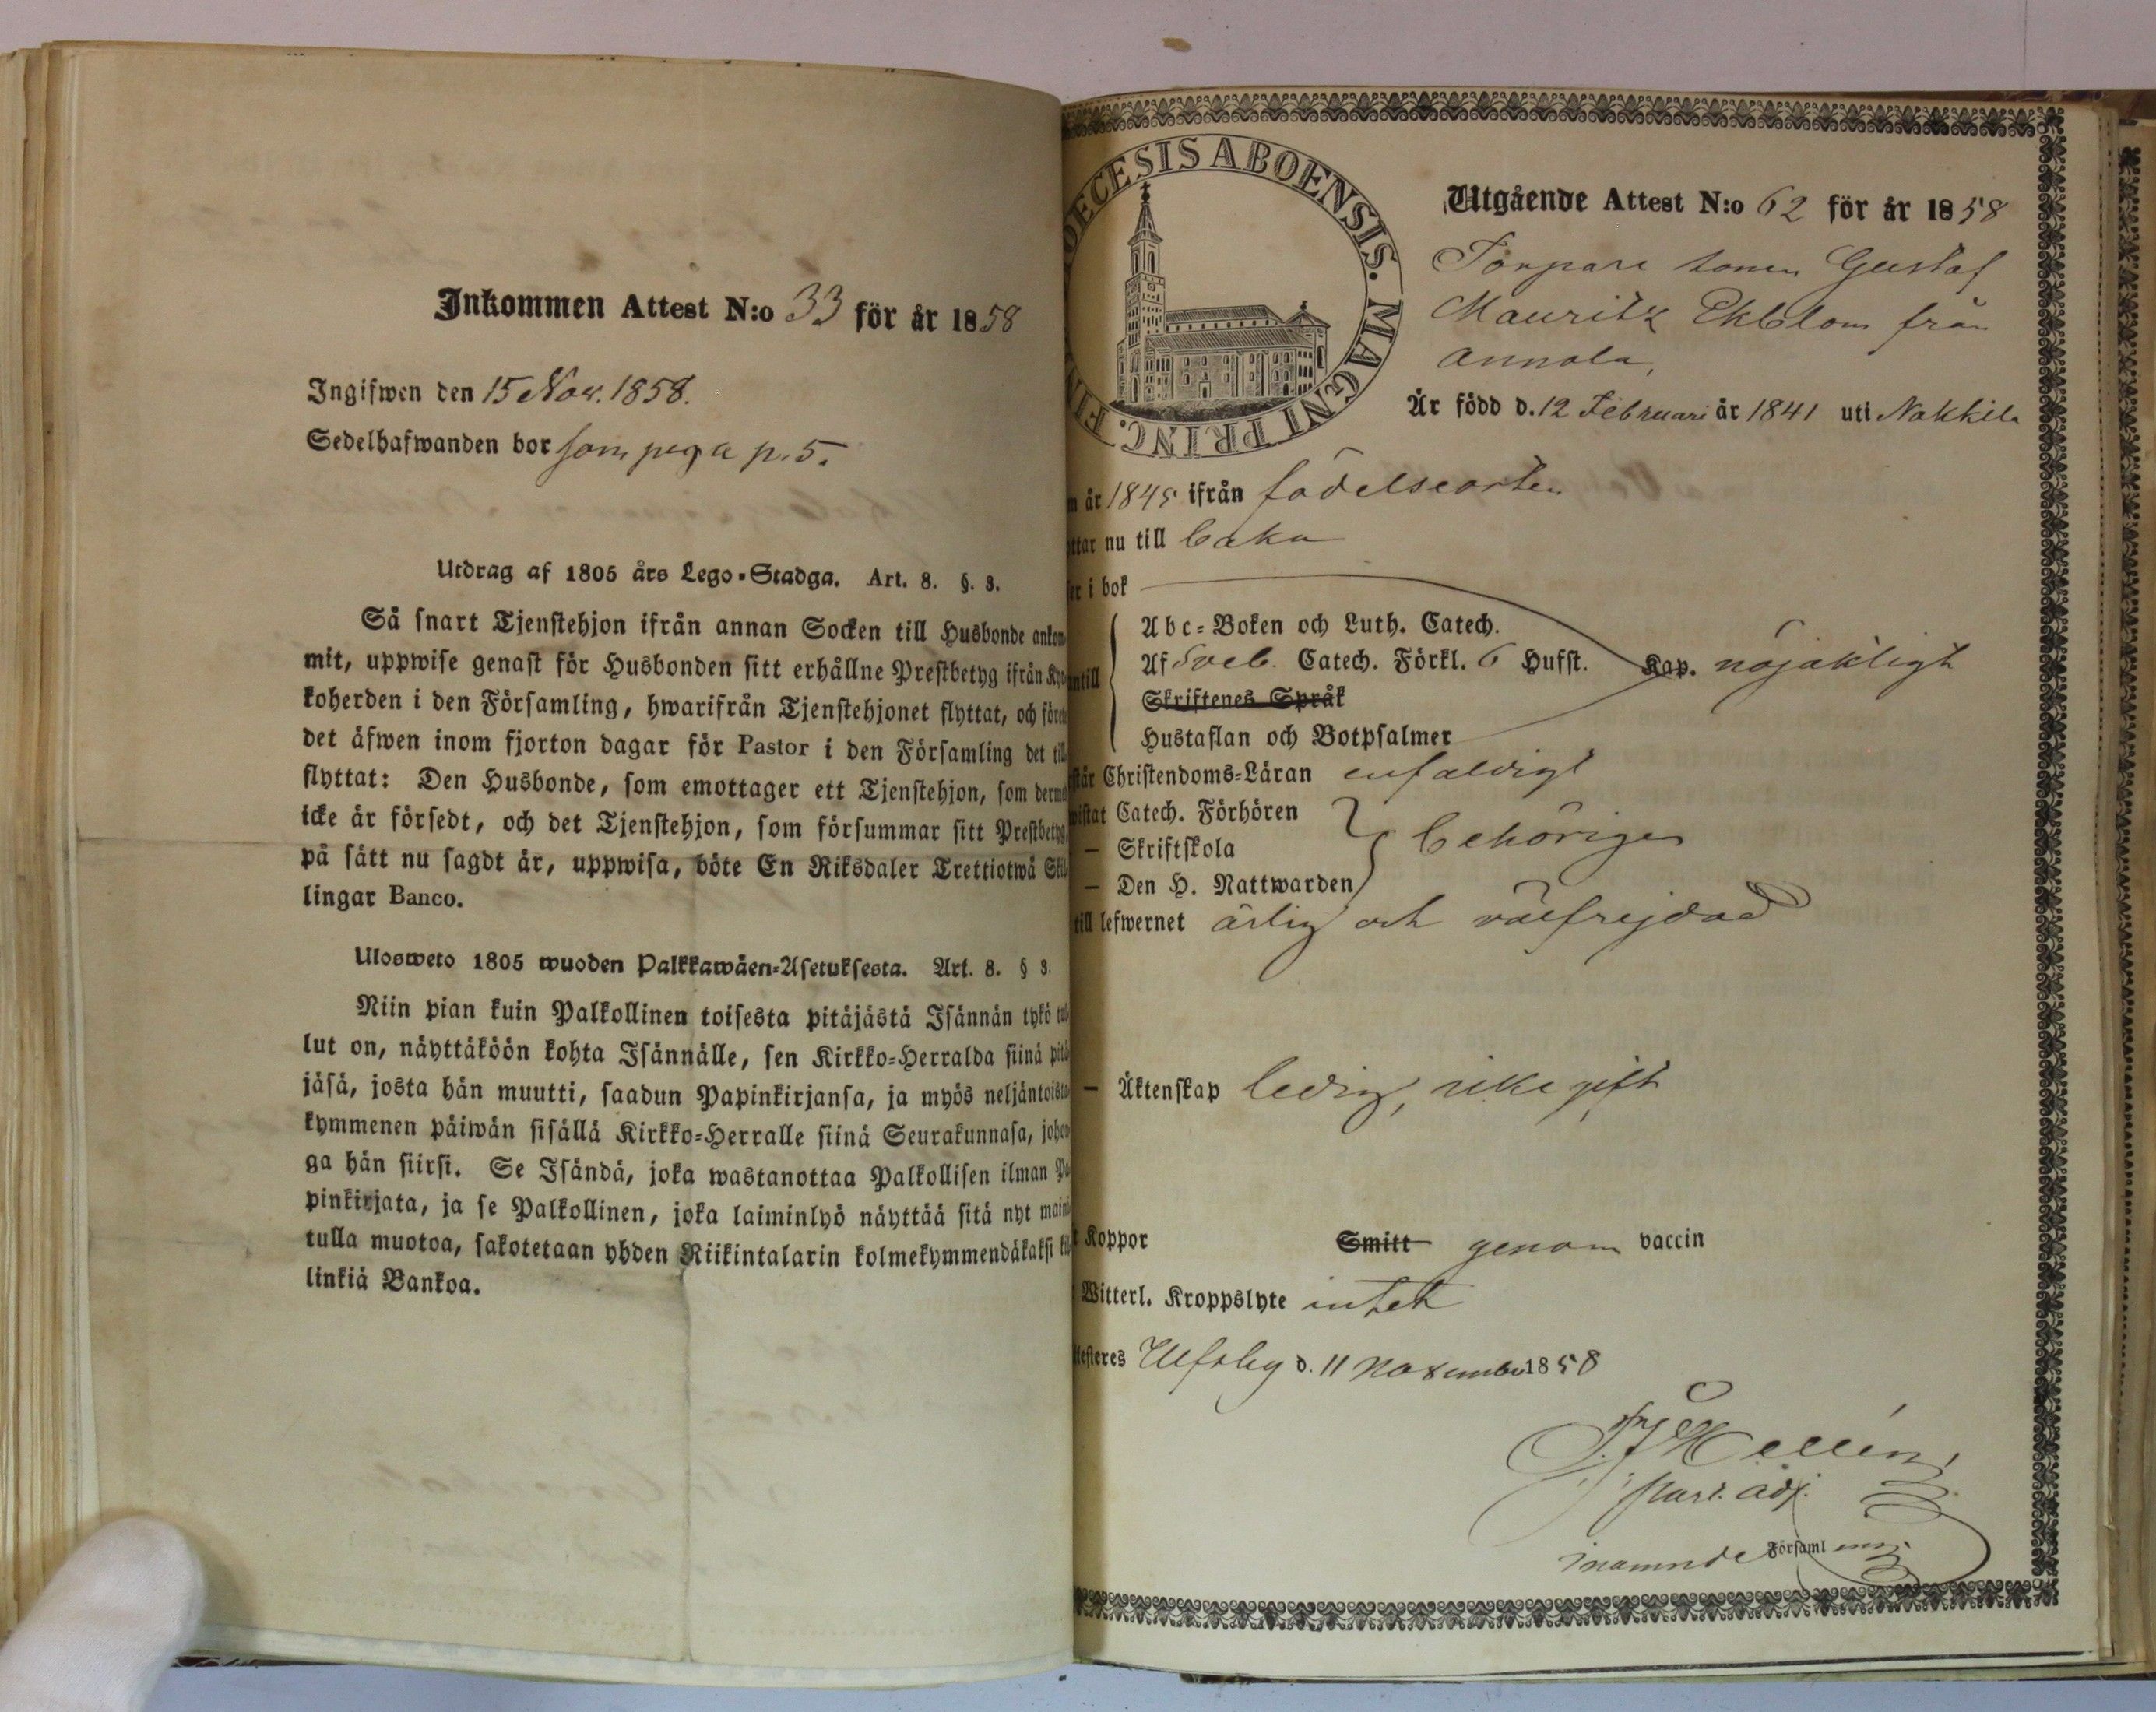 Inkommen Attest N:o 33 för år 1858
Ingifwen den 15 Nov. 1858.
Sedelhafwanden bor som piga p. 5.
Utdrag af 1805 års Lego-Stadga. Art. 8. §. 3.
Så snart Tjenstehjon ifrån annan Socken till Husbonde ankom-
mit, uppwise genast för Husbonden sitt erhållne Prestbetyg ifrån Kyr-
koherden i den Församling, hwarifrån Tjenstehjonet flyttat, och förete
det äfwen inom fjorton dagar för Pastor i den Församling det till-
flyttat: Den Husbonde, som emottager ett Tjenstehjon, som dermed
icke är försedt, och det Tjenstehjon, som försummar sitt Prestbetyg,
på sätt nu sagdt är, uppwisa, böte En Riksdaler Trettiotwå Skil-
lingar Banco.
Ulosweto 1805 wuoden Palkkawäen-Asetuksesta. Art. 8. § 3.
Niin pian kuin Palkollinen toisesta pitäjästä Isännän tykö tul-
lut on, näyttäköön kohta Isännälle, sen Kirkko-Herralda siinä pitä-
jäsä, josta hän muutti, saadun Papinkirjansa, ja myös neljäntoista-
kymmenen päiwän sisällä Kirkko-Herralle siinä Seurakunnasa, johon-
ga hän siirsi. Se Isändä, joka wastanottaa Palkollisen ilman Pa-
pinkirjata, ja se Palkollinen, joka laiminlyö näyttää sitä nyt maini-
tulla muotoa, sakotetaan yhden Riikintalarin kolmekymmendäkaksi kil-
linkiä Bankoa.
OECESIS ABOENSIS. MAGNI PRINC. FIN
Utgående Attest N:o 62 för år 1858
Torpare sonen Gustaf
Mauritz Ekblom från
Annola,
Är född d. 12 Februari år 1841 uti Nakkila
m år 1845 ifrån födelseorten
ttar nu till baka
ser i bok
Abc-Boken och Luth. Catech.
Af Sveb. Catech. Förkl. 6 Hufst. Kap. nöjaktligt
ntill
Skriftenes Språk
Hustaflan och Botpsalmer
står Christendoms-Läran enfaldigt
wistat Catech. Förhören
— Skriftskola behörigen
— Den H. Nattwarden
till lefwernet ärlig och välfrejdad
— Äktenskap ledig, icke gift
t Koppor Smitt genom vaccin
Witterl. Kroppslyte intet
ttesteres Ulfsby d. 11 November 1858
Hellén,
past. adj.
i namnde Församl ing.